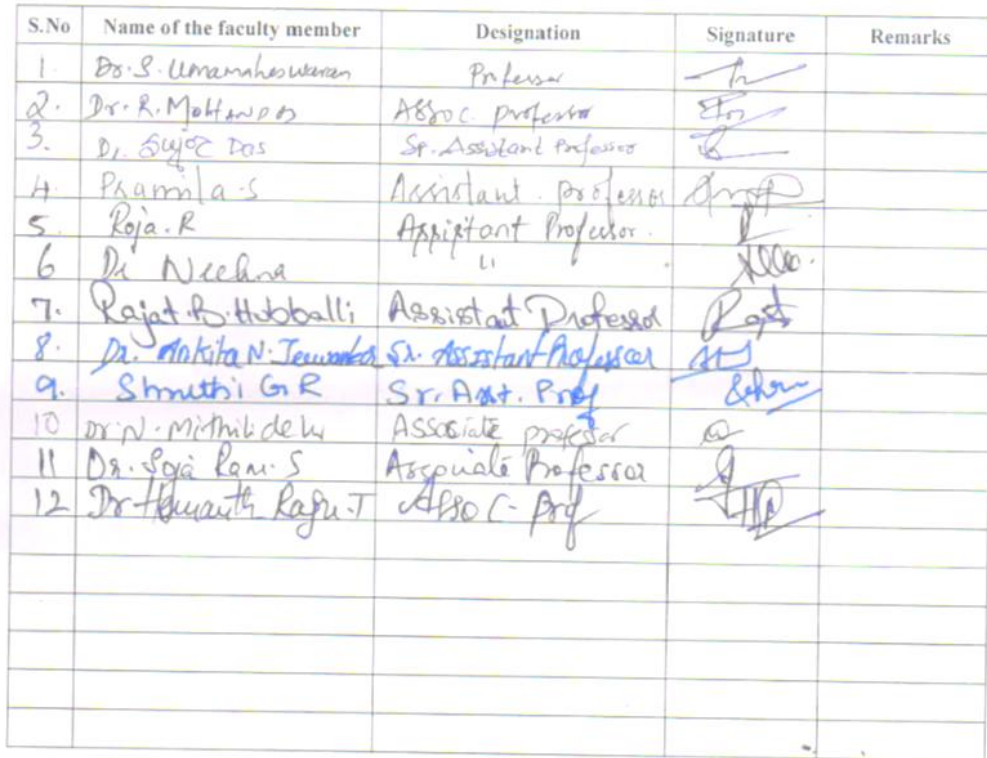 S.No Name of the faculty member Designation Signature Remarks
1. Dr. S. Umamaheswaran Professor
2. Dr. R. MOHANDAS Assoc. professor
3. Dr. Sujoe Das Sr. Assistant Professor
4. Pramila.S Assistant professor
5. Roja.R Assistant Professor.
6 Dr Neehna "
7. Rajat.B.Hubballi Assistant Professor
8. Dr. Ankita N. Sr. Assistant Professor
9. Shruthi G R Sr. Asst. Prof
10 Dr. N. Mithili devi Associate professor
11 Dr. Soja Rani.S Associate Professor
12 Dr Hemanth Raju.T Assoc- Prof